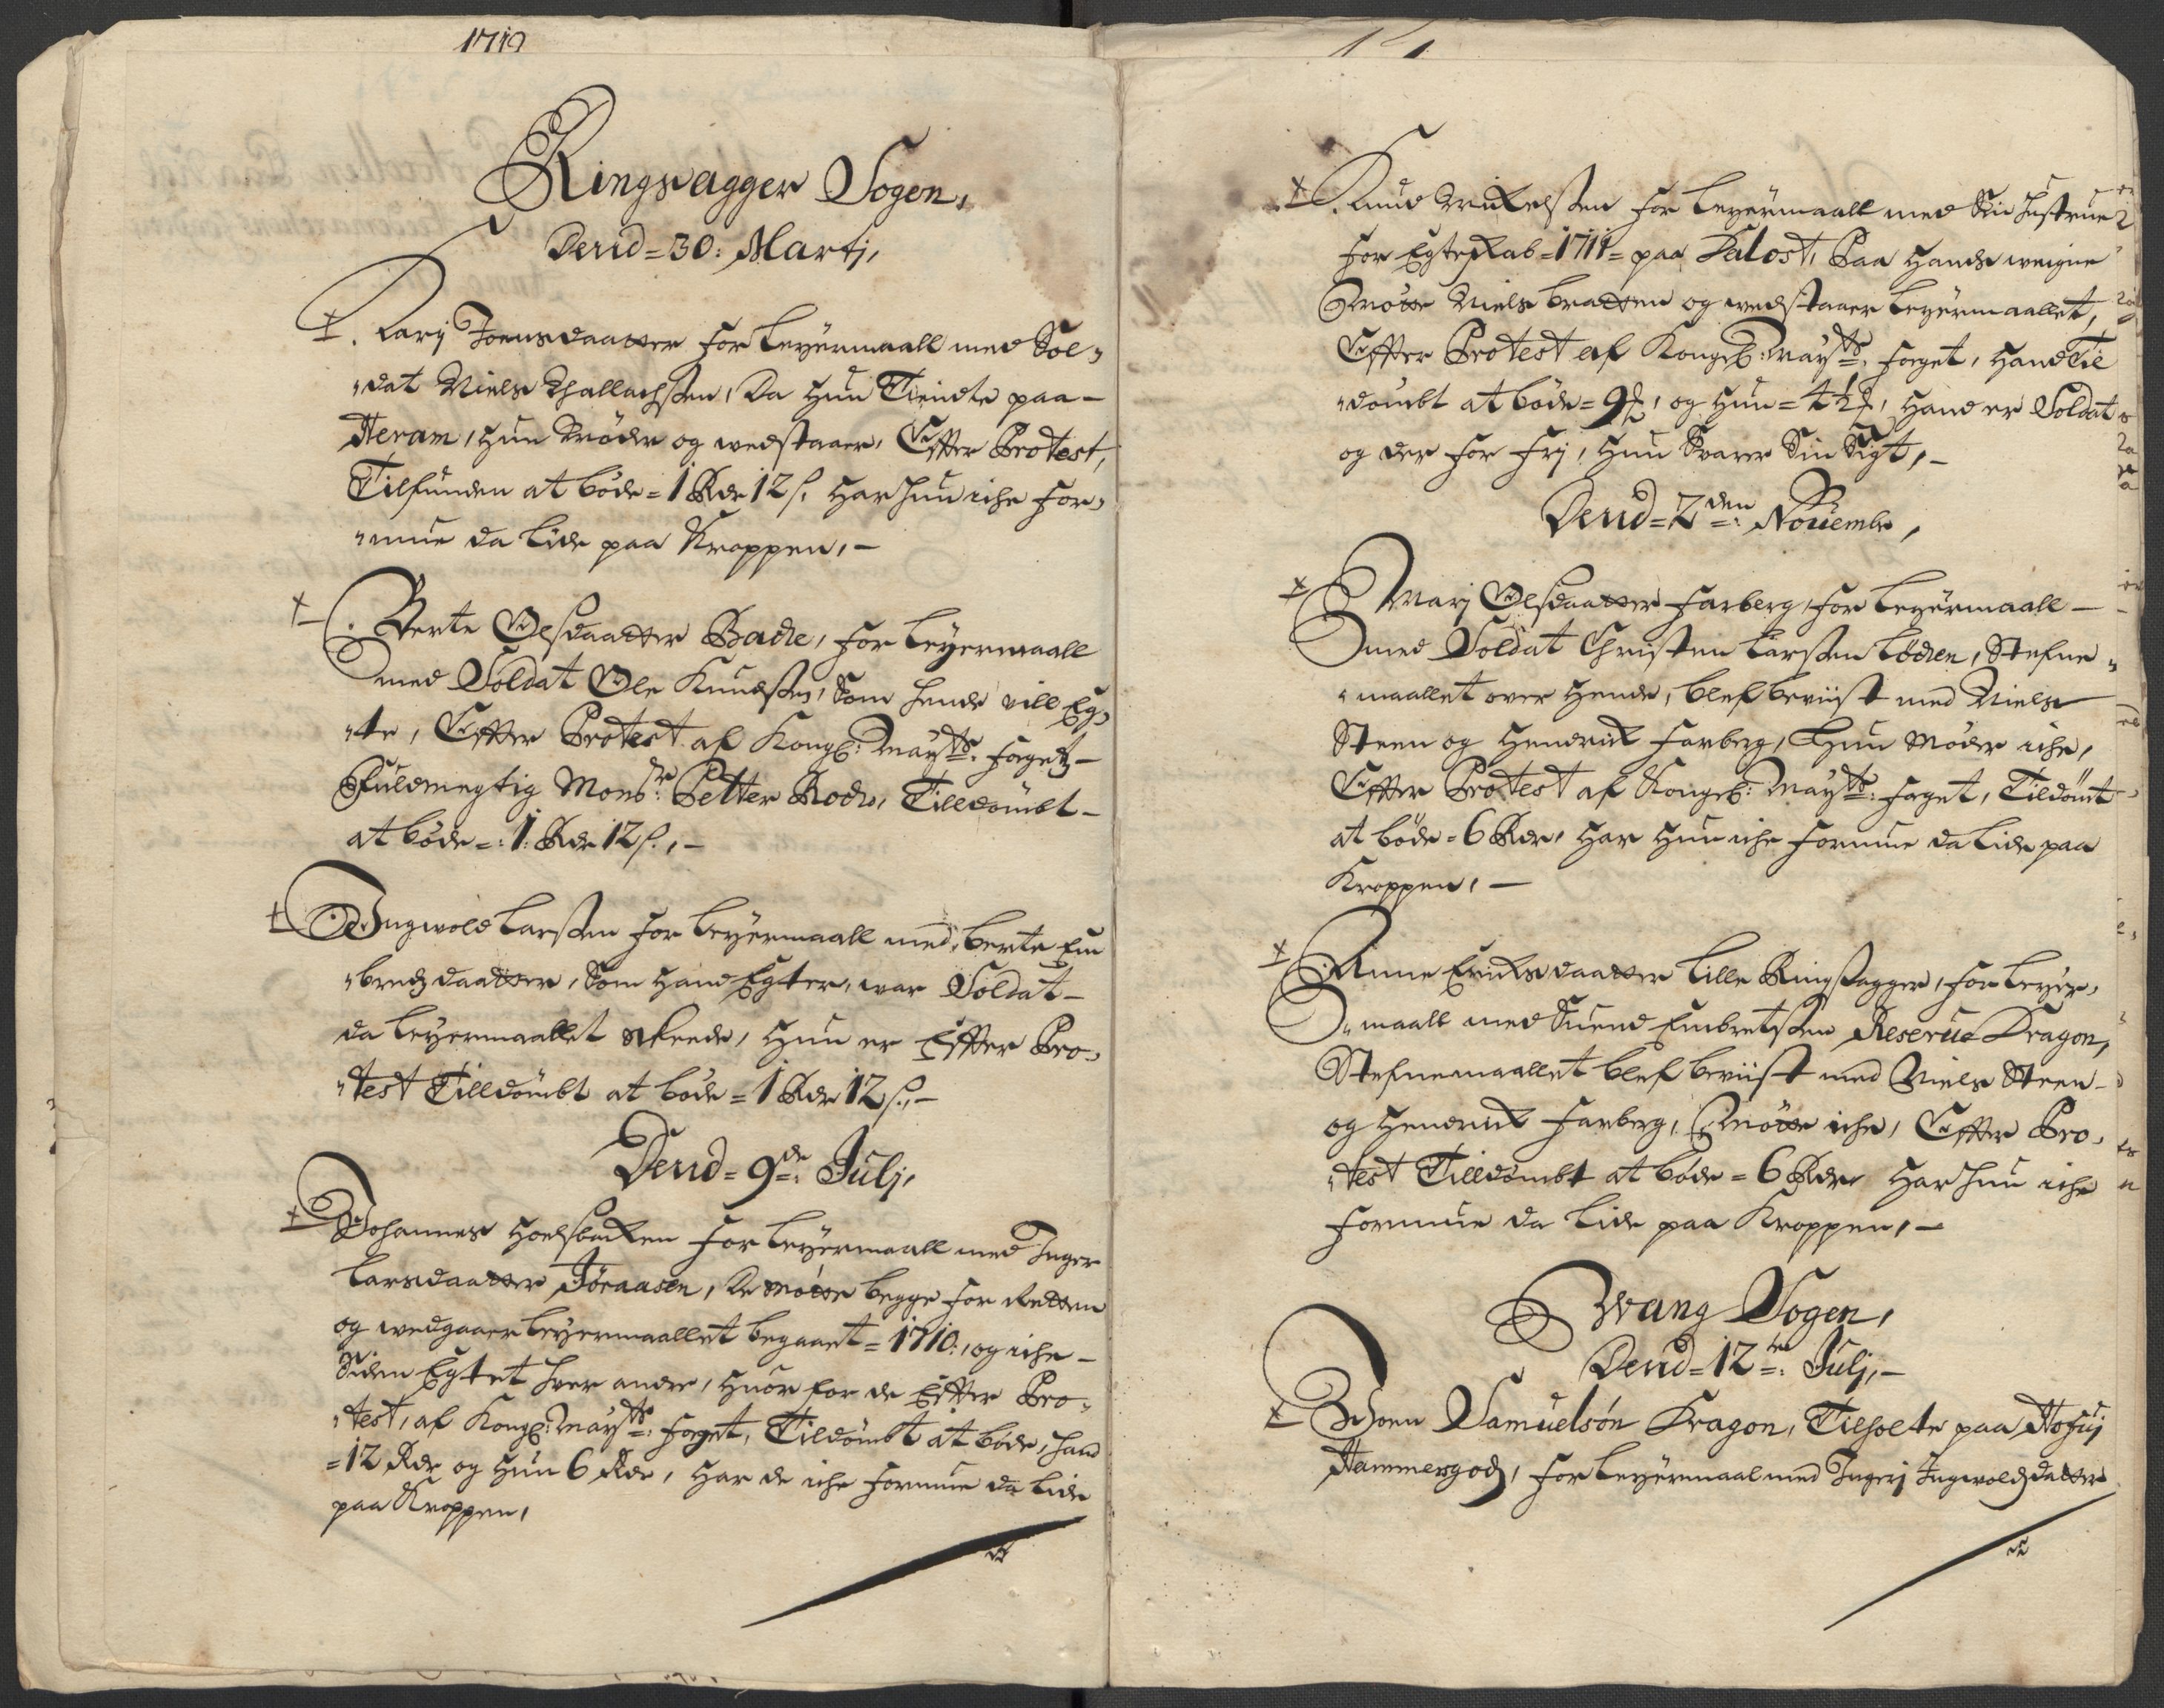 1712
Ringsagger Sogen,
Dend = 30: Martj,
Karj Joensdaatter for Leyermaall med Sol-
dat Niels Thallachsen, Da hun Tiendte paa -
Heram, hun Møder og wedstaaer, Effter Protest,
Tilfunden at bøde = 1 Rdr 12 s. har hun iche for-
mue da lide paa Kroppen, -
Berte Olsdaatter Bade, for Leyermaall
med Soldat Ole Knudsen, Som hende vill Eg-
te, Effter Protest af Kongl: Mayts: foget -
Fuldmegtig Monsr: Petter Rode, Tilldømbt -
at bøde =: 1: Rdr 12 s., -
Ingwold Larssen for Leyermaall med Berte Em
bretzdaatter, Som hand Egter, war Soldat -
da Leyermaallet skeede, hun er Effter Pro-
test Tilldømbt at bøde = 1 Rdr 12 s., -
Dend = 9de: Julj,
Johannes Hoelsbachen for Leyermaall med Inger
Larsdaatter Jøraasen, De møtte begge for Retten
og wedgaaer Leyermaallet begaaet = 1710:, og iche -
Siden Egtet hver andre, huor for de Effter Pro-
test, af Kongl: Mayts: foget, Tildømbt at bøde, hand
= 12 Rdr og hun 6 Rdr, har de iche formue da lide
paa Kroppen,
Knud Michelsen for Leyermaall med Sin hustrue
for Egteskab = 1711 = paa Falost, Paa hands weigne
Møtte Niels Bratten og wedstaaer Leyermaallet,
Effter Protest af Kongl: Mayts: foget, hand Til
dømbt at bøde = 9 , og hun = 4½ , hand er Soldat
og der for frj, hun Svarer Sin Sigt, -
Dend = 2den: Novembr,
Marj Olsdaatter Farberg, for Leyermaall -
med Soldat Christen Larsen Løchen, Stefne
maallet over hende, blef beviist med Niels
Steen og Hendrich Farberg, Hun møder iche,
Effter Protest af Kongl: Mayts: foget, Tildømt
at bøde = 6 Rdr, har hun iche formue da lide paa
Kroppen, -
Anne Erichsdaatter Lille Ringsagger, for Leyer-
maall med Suend Embretsen Reserue Dragon,
Stefnemaallet blef beviist med Niels Steen -
og Hendrich Farberg, Møtte iche, Effter Pro-
test Tilldømbt at bøde = 6 Rdr har hun iche
formue da lide paa Kroppen, -
Wang Sogen,
Dend = 12te: Julj, -
Joen Samuelsøn Dragon, Tilholte paa Hofuj
Hammergodz, for Leyermaal med Ingerj Ingwoldzdatter